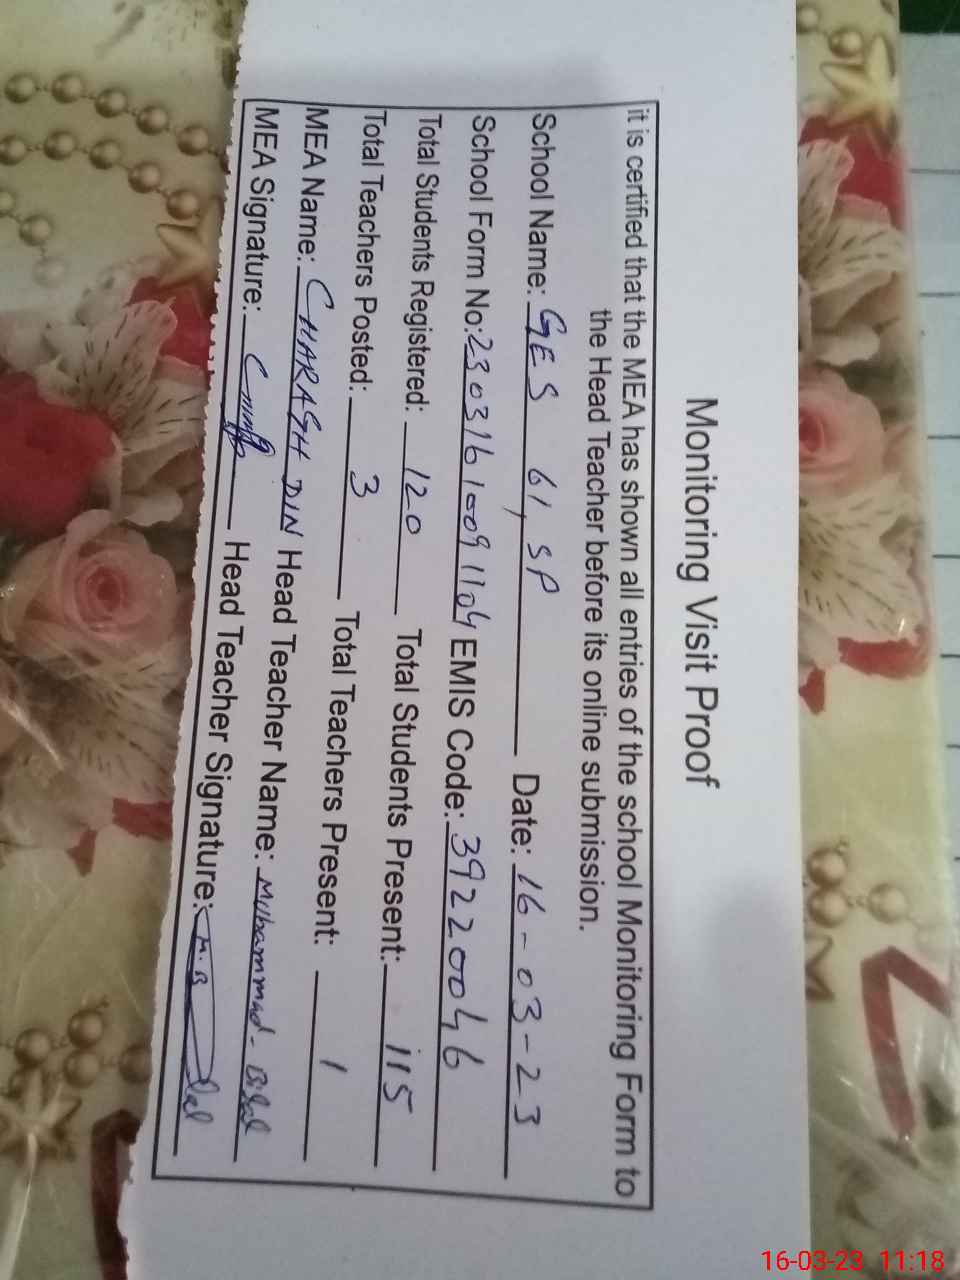 Monitoring Visit Proof
it is certified that the MEA has shown all entries of the school Monitoring Form to
the Head Teacher before its online submission.
School Name: GES 61, SP Date: 16-03-23
School Form No: 23031610091104 EMIS Code: 39220046
Total Students Registered: 120 Total Students Present: 115
Total Teachers Posted: 3 Total Teachers Present: 1
MEA Name: CHARAGH DIN Head Teacher Name: Muhammad-Bilal
MEA Signature: Head Teacher Signature:
16-03-23 11:18